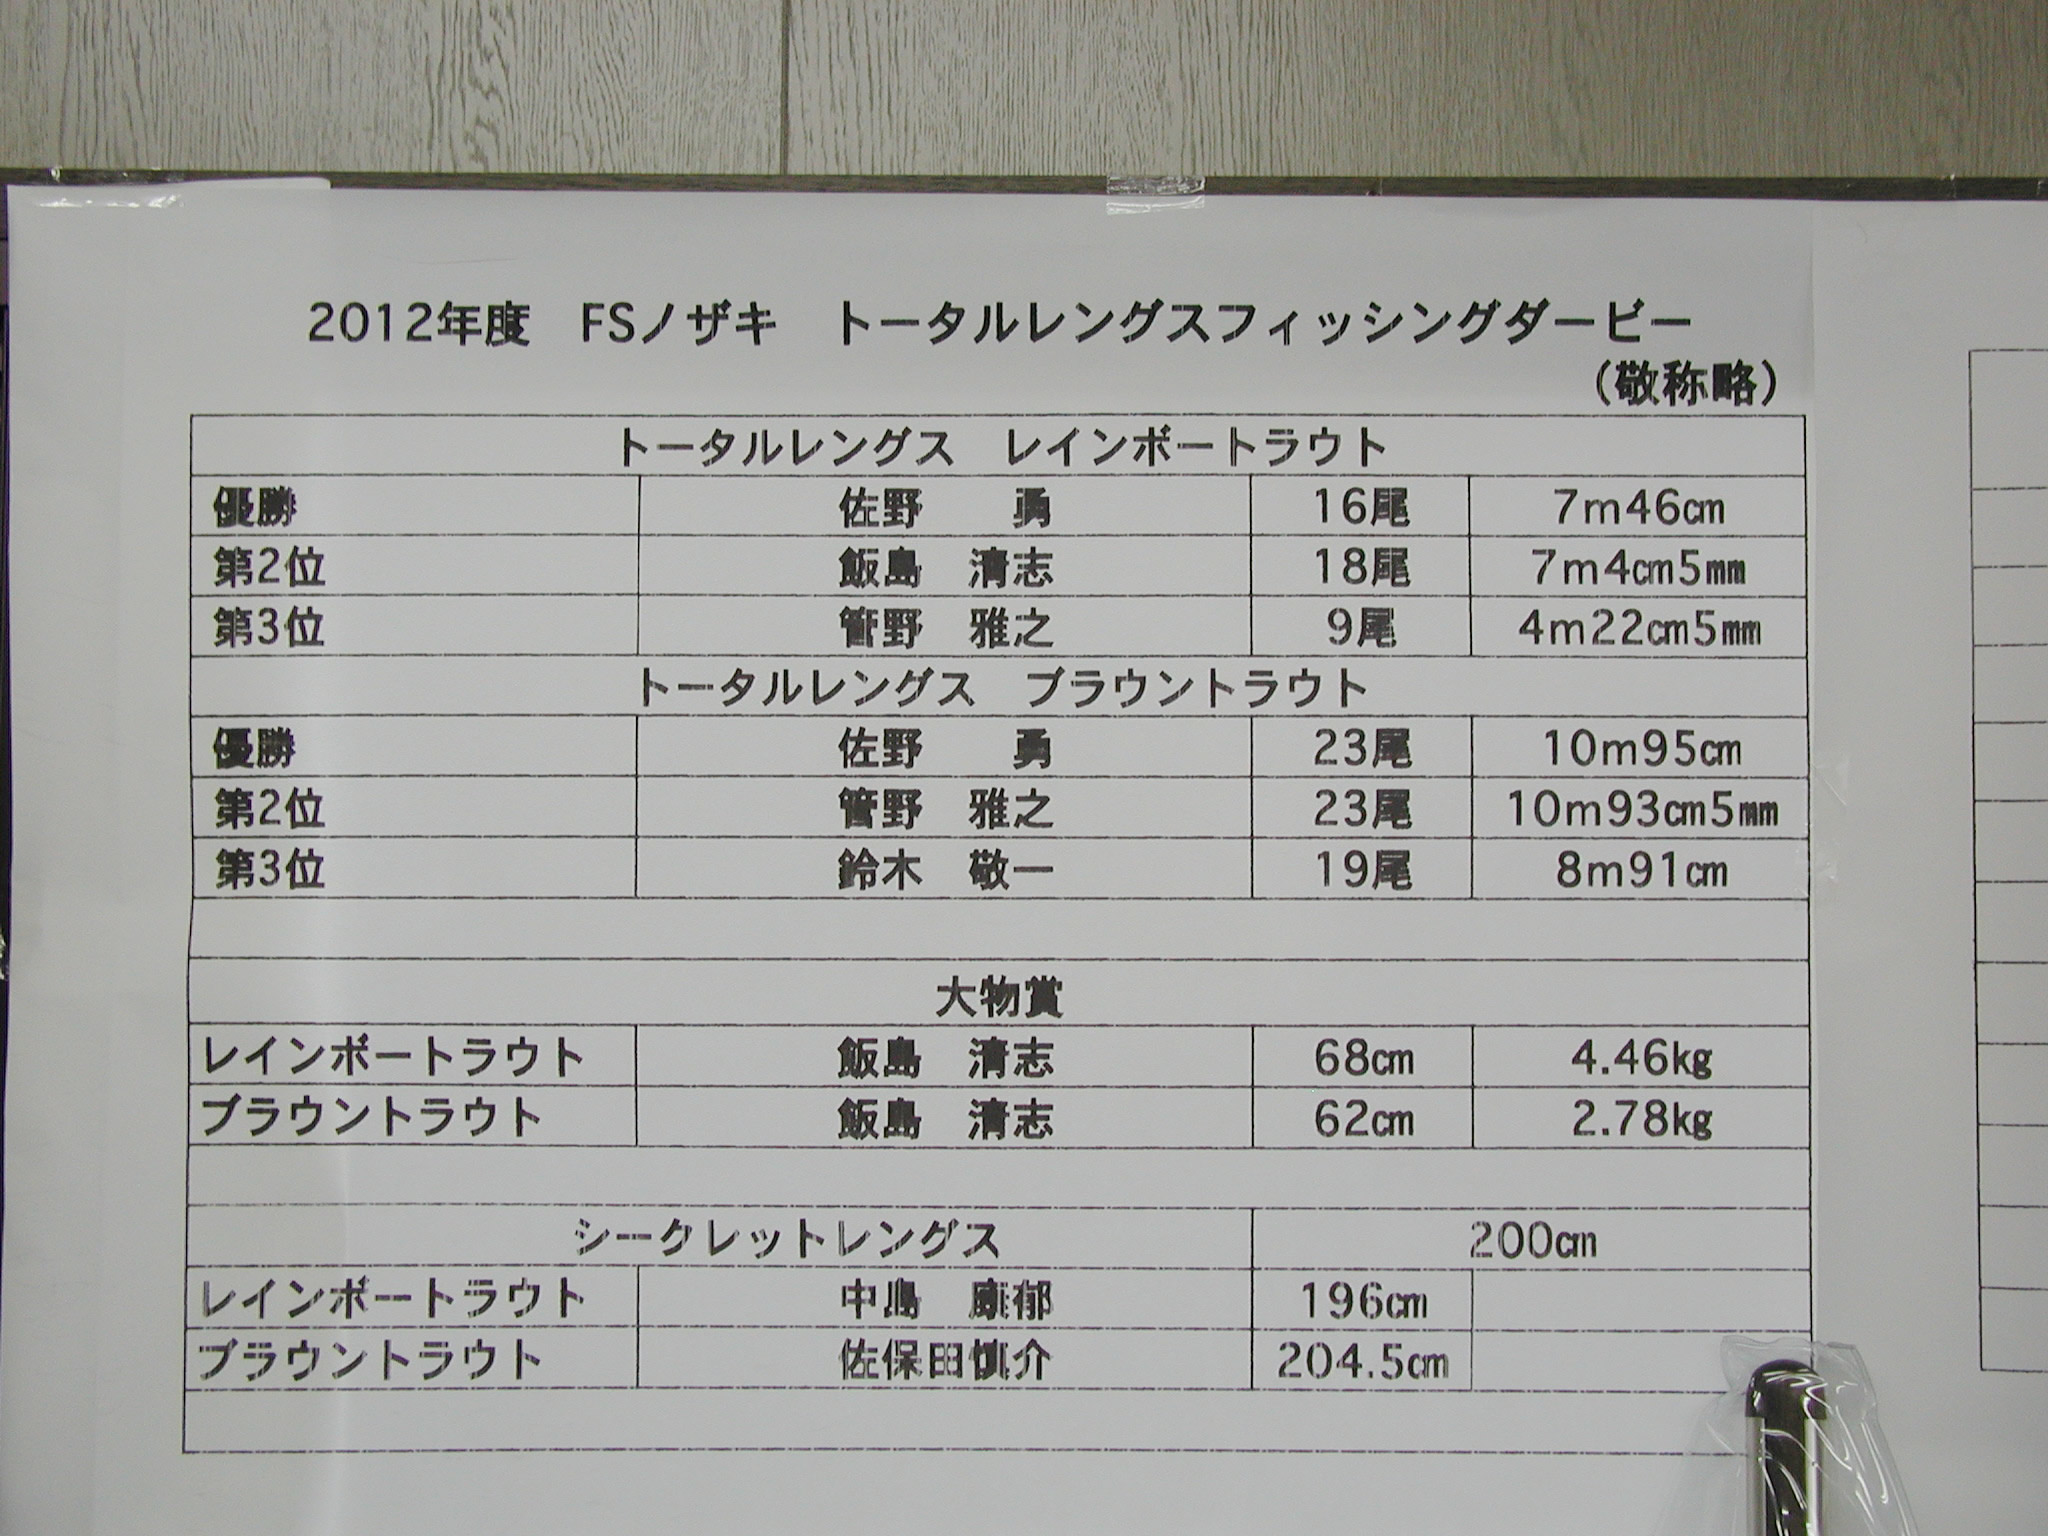 2012年度　FSノザキ　トータルレングスフィッシングダービー
（敬称略）
トータルレングス　レインボートラウト
優勝　佐野　勇　16尾　7m46㎝
第2位　飯島　清志　18尾　7m4㎝5㎜
第3位　管野　雅之　9尾　4m22㎝5㎜
トータルレングス　ブラウントラウト
優勝　佐野　勇　23尾　10m95㎝
第2位　管野　雅之　23尾　10m93㎝5㎜
第3位　鈴木　敬一　19尾　8m91㎝
大物賞
レインボートラウト　飯島　清志　68㎝　4.46kg
ブラウントラウト　飯島　清志　62㎝　2.78kg
シークレットレングス　200㎝
レインボートラウト　中島　康郁　196㎝
ブラウントラウト　佐保田慎介　204.5㎝